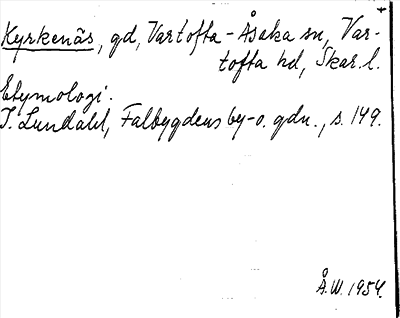 Kyrkenäs, gd, Vartofta-Åsaka sn, Var-
tofta hd, Skar.l.
Etymologi.
I. Lundahl, Falbygdens by-o. gdn., s. 149.
Å.W. 1954.